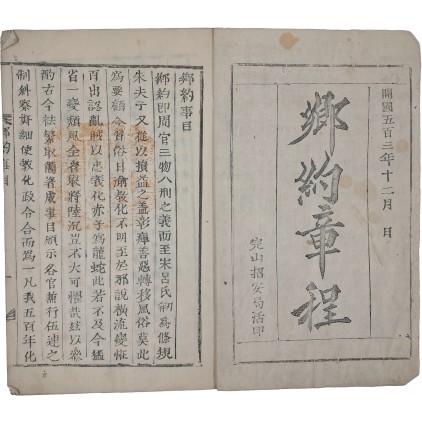 開國五百三年十二月 日
鄉約章程
完山招安局活印
鄉約事目
鄉約即周官三物八刑之義而至宋呂氏刱爲條規
朱夫子又從以損益之盖彰癉善惡轉移風俗莫此
爲要顧今習俗日渝敎化不明至於邪說橫流變恠
百出認亂賊以忠義化赤子爲龍蛇此若不及今猛
省一變頹風全省擧將陸沉豈不大可懼哉玆以參
酌古今祛繁取簡著成事目頒示各官兼行伍連之
制糾察奸細使敎化政令合而爲一凡我五百年化
鄉約事目